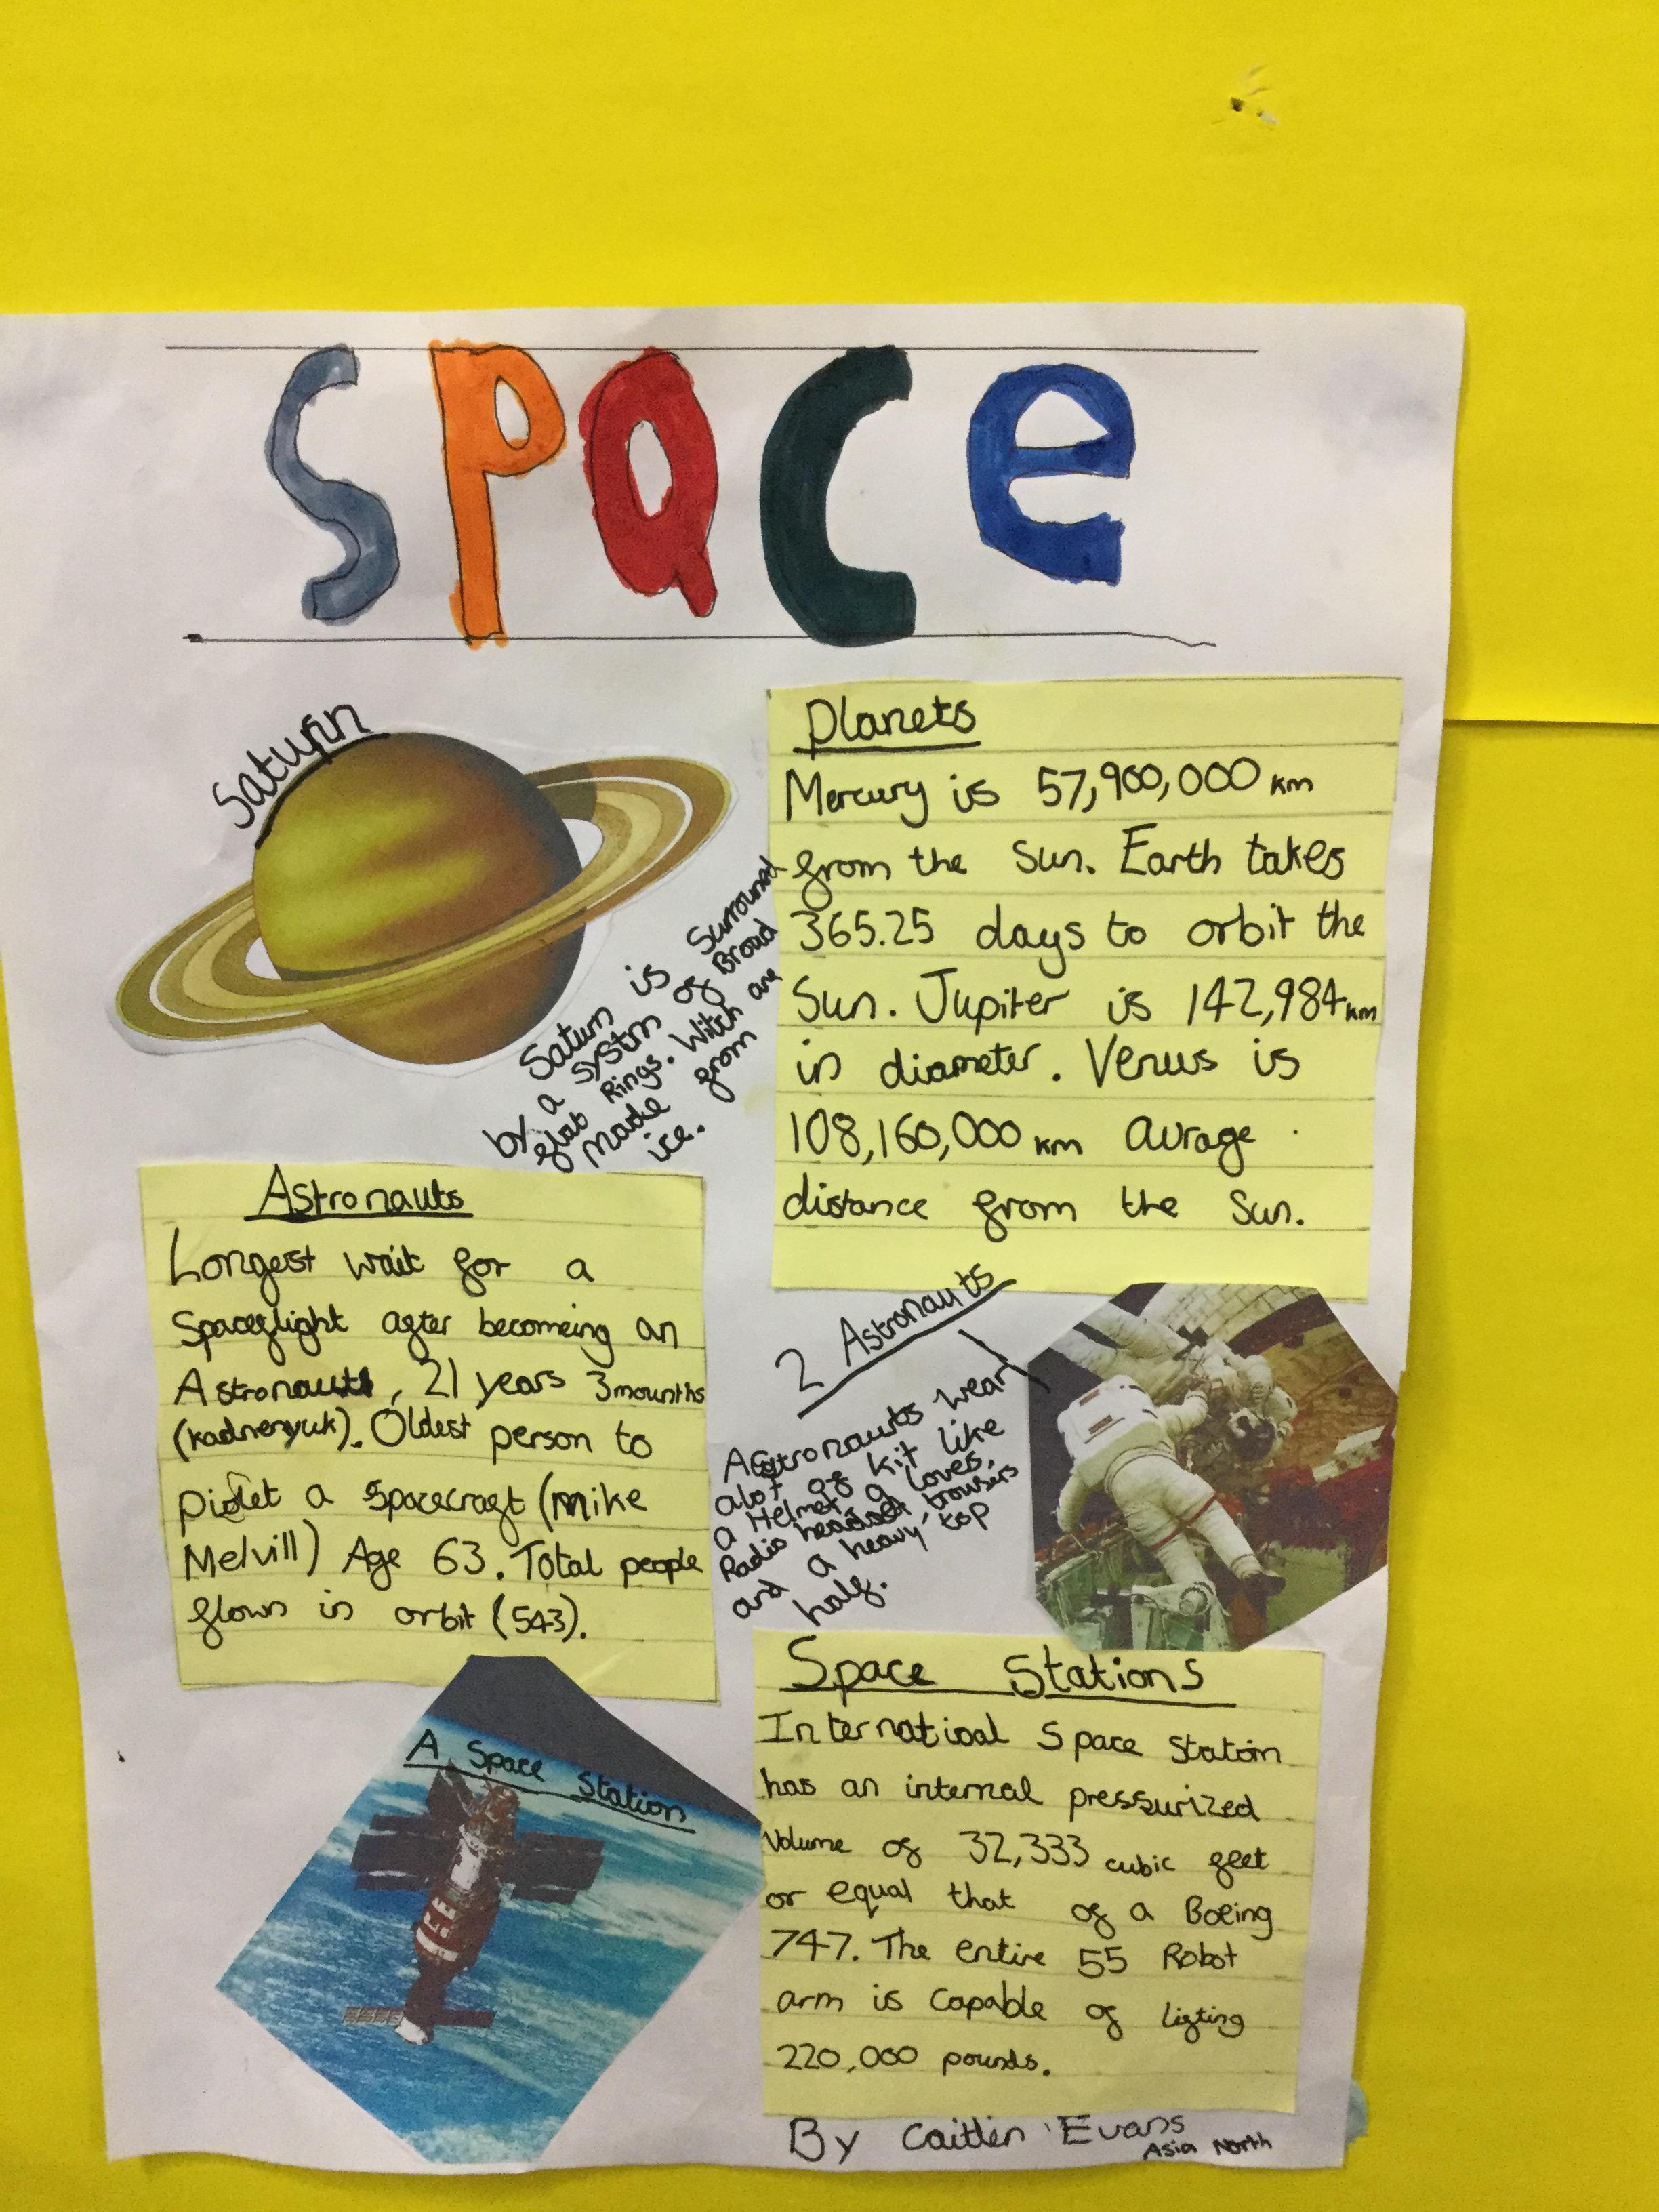 SPace
Saturn
Saturn is Surrouned
by a systm of Broad
flat Rings. Witch are
made from
ice.
Planets
Mercury is 57,900,000 km
from the Sun. Earth takes
365.25 days to orbit the
Sun. Jupiter is 142,984 km
in diameter. Venus is
108,160,000 km avrage
distance from the Sun.
Astronauts
Longest wait for a
Spaceflight after becomeing an
Astronaut, 21 years 3 mounths
(kadnenyuk). Oldest person to
a spacecraft (Mike
Melvill) Age 63. Total people
flown in orbit (543).
2 Astronauts
Astronauts wear
alot of kit like
a Helmet, gloves,
Radio headset, browsers
and a heavy top
half.
A Space Station
Space Stations
Internatioal Space Station
has an internal pressurized
Volume of 32,333 cubic feet
or equal that of a Boeing
747. The entire 55 Robot
arm is capable of lifting
220,000 pounds.
By Caitlin Evans
Asia North